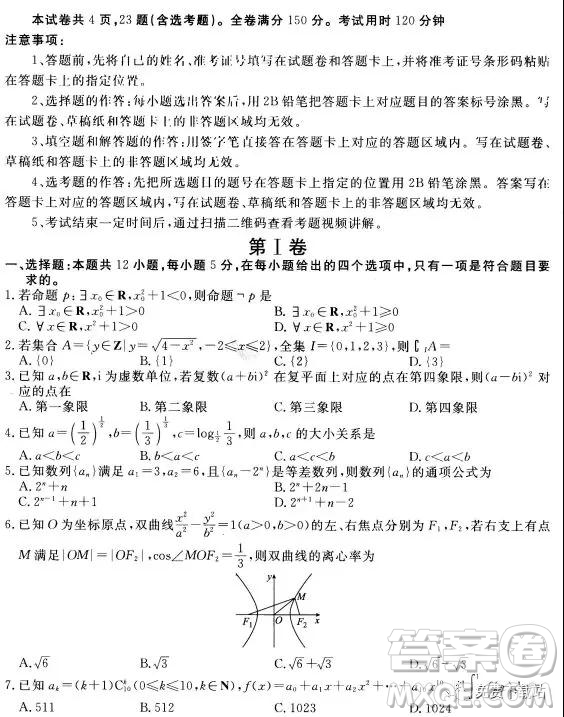 本试卷共 4 页,23题(含选考题)。全卷满分 150 分。考试用时 120 分钟
注意事项:
1、答题前,先将自己的姓名、准考证号填写在试题卷和答题卡上,并将准考证号条形码粘贴
在答题卡上的指定位置。
2、选择题的作答:每小题选出答案后,用 2B 铅笔把答题卡上对应题目的答案标号涂黑。写
在试题卷、草稿纸和答题卡上的非答题区域均无效。
3、填空题和解答题的作答:用签字笔直接答在答题卡上对应的答题区域内。写在试题卷、
草稿纸和答题卡上的非答题区域均无效。
4、选考题的作答:先把所选题目的题号在答题卡上指定的位置用 2B 铅笔涂黑。答案写在
答题卡上对应的答题区域内,写在试题卷、草稿纸和答题卡上的非答题区域均无效。
5、考试结束一定时间后,通过扫描二维码查看考题视频讲解。
第 Ⅰ 卷
一、选择题:本题共 12 小题,每小题 5 分,在每小题给出的四个选项中,只有一项是符合题目要
求的。
1. 若命题 p:∃x₀∈R,x₀²+1<0,则命题¬p是
A. ∃x₀∈R,x₀²+1>0 B. ∃x₀∈R,x₀²+1≥0
C. ∀x∈R,x²+1>0 D. ∀x∈R,x²+1≥0
2. 若集合 A={y∈Z|y=√(4-x²),-2≤x≤2},全集 I={0,1,2,3},则∁_I A=
A. {0} B. {1} C. {2} D. {3}
3. 已知 a,b∈R,i 为虚数单位,若复数(a+bi)²在复平面上对应的点在第四象限,则(a-bi)²对
应的点在
A. 第一象限 B. 第二象限 C. 第三象限 D. 第四象限
4. 已知 a=(1/2)^(1/3),b=(1/3)^(1/2),c=log_(1/2)(1/3),则 a,b,c 的大小关系是
A. a<b<c B. b<a<c C. a<c<b D. c<a<b
5. 已知数列{aₙ}满足 a₁=3,a₂=6,且{aₙ-2ⁿ}是等差数列,则数列{aₙ}的通项公式为
A. 2ⁿ+n B. 2ⁿ+2n-1
C. 2ⁿ⁻¹+n+1 D. 2ⁿ⁺¹+n-2
6. 已知 O 为坐标原点,双曲线 x²/a²-y²/b²=1(a>0,b>0)的左、右焦点分别为 F₁,F₂,若右支上有点
M 满足|OM|=|OF₂|,cos∠MOF₂=1/3,则双曲线的离心率为
y
M
F₁ O F₂ x
A. √6 B. √3 C. D. √6+√3
7. 已知 aₖ=(k+1)C₁₀ᵏ(0≤k≤10,k∈N),f(x)=a₀+a₁x+a₂x²+⋯+a₁₀x¹⁰
A. 511 B. 512 C. 1023 D. 1024
答案圈
免费下载站